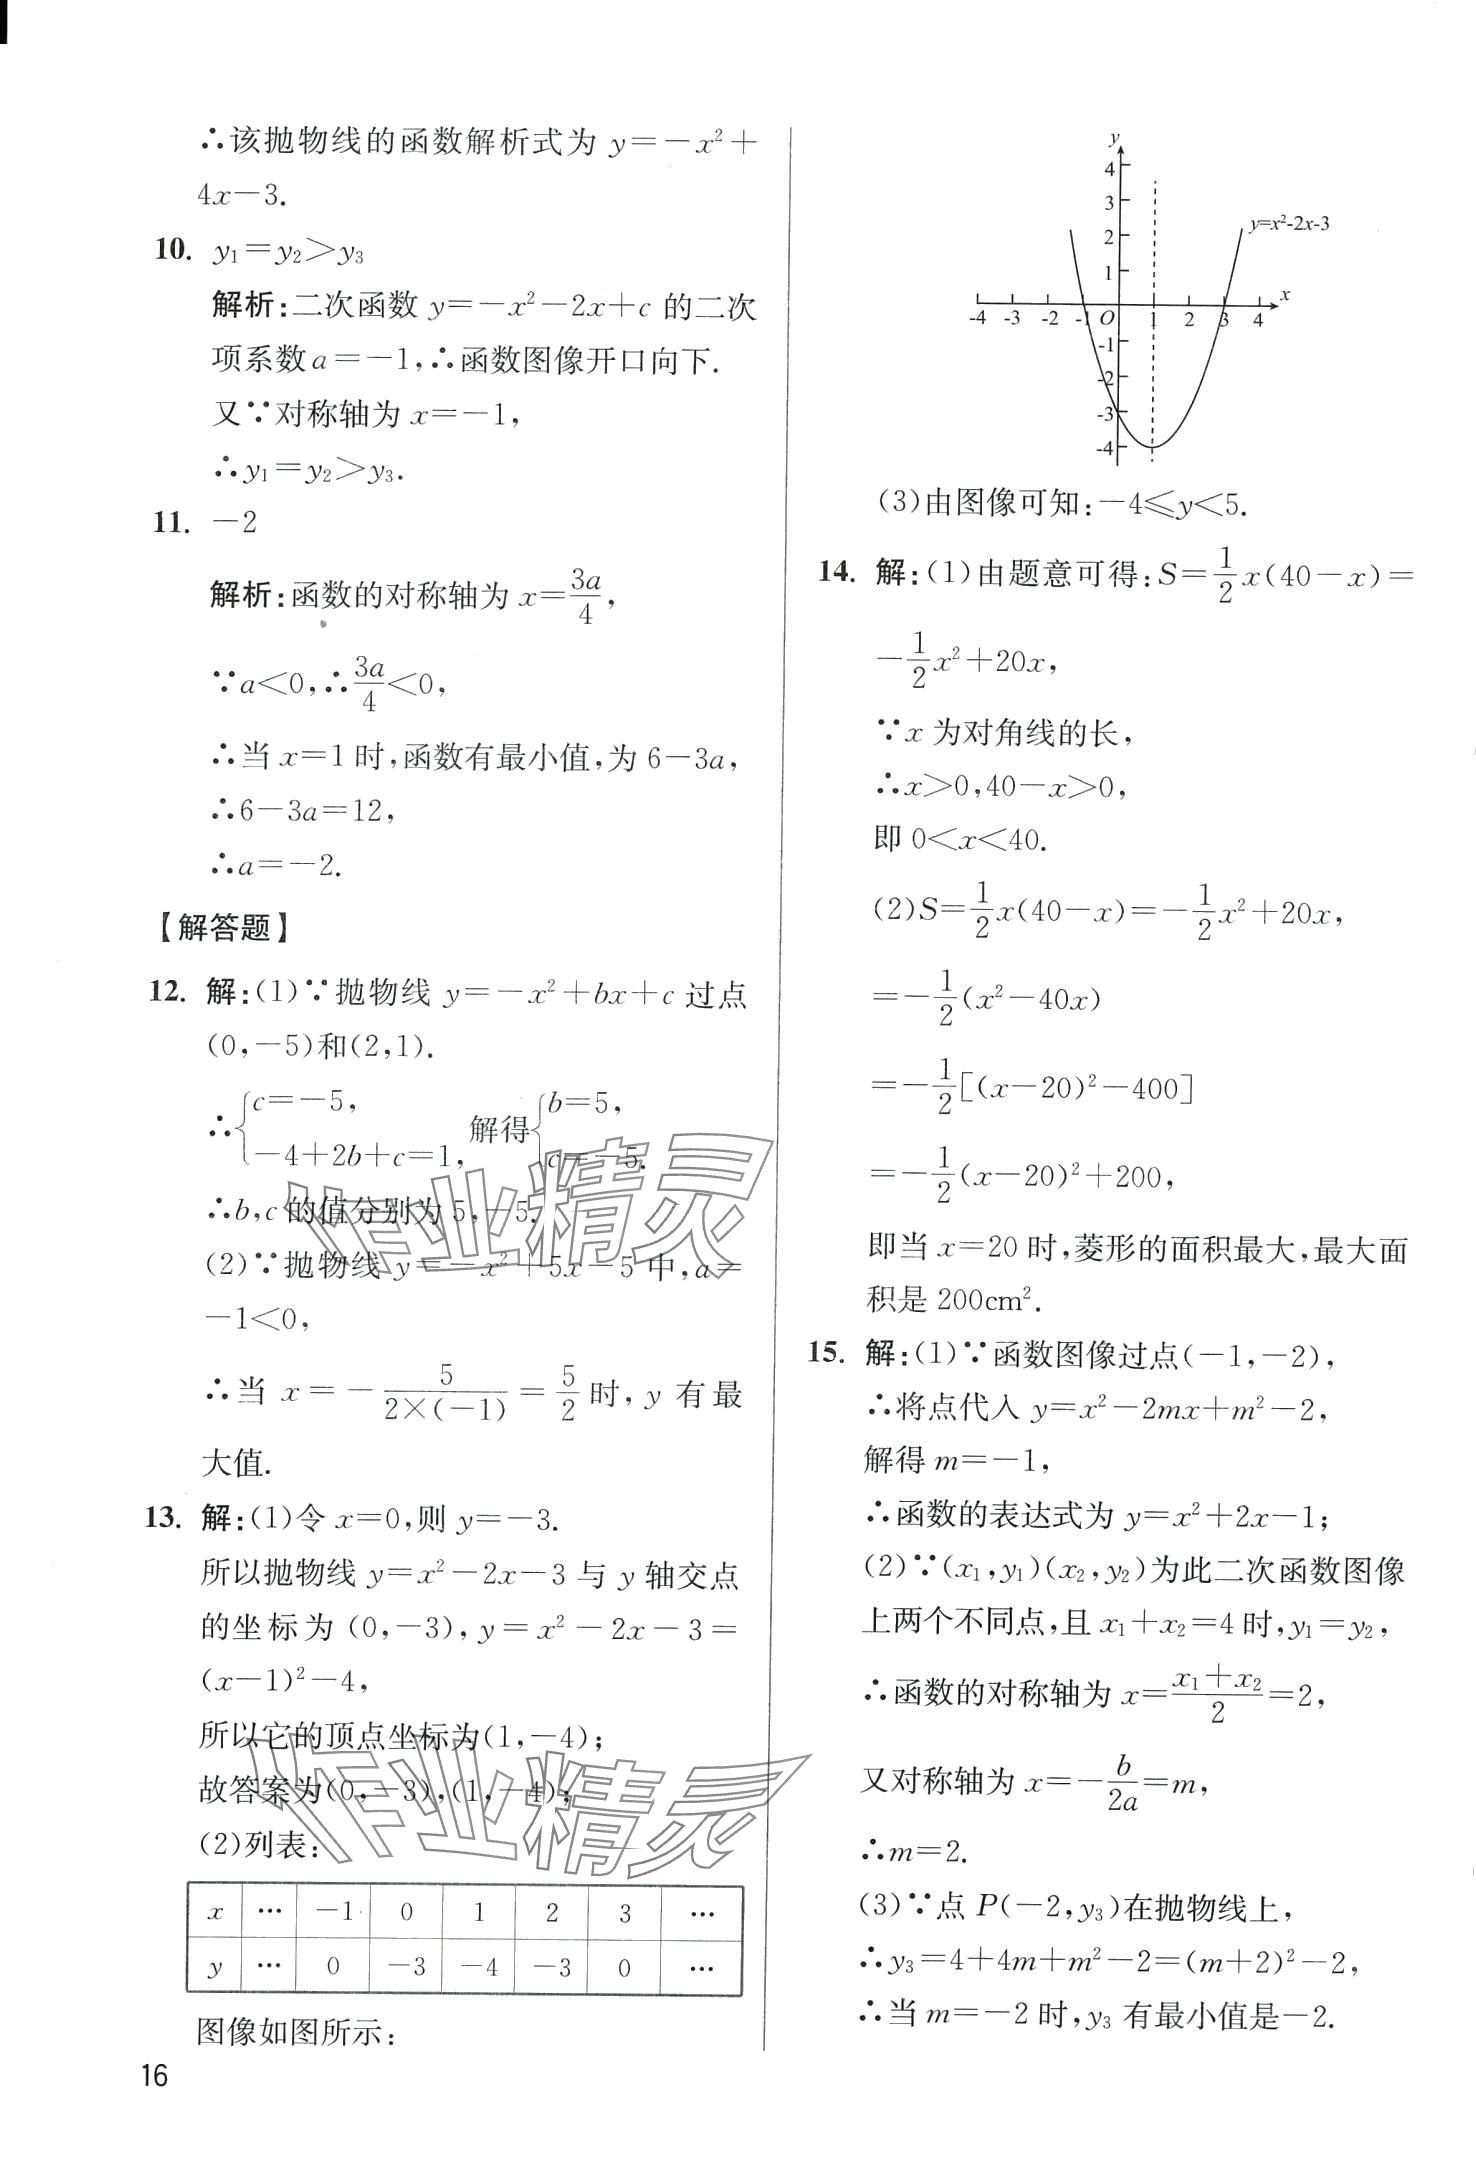 ∴该抛物线的函数解析式为 y=-x²+
4x-3.
10. y₁=y₂>y₃
解析:二次函数 y=-x²-2x+c 的二次
项系数a=-1,∴函数图像开口向下.
又∵对称轴为 x=-1,
∴y₁=y₂>y₃.
11. -2
解析:函数的对称轴为 x=3a/4,
∵a<0,∴3a/4<0,
∴当 x=1 时,函数有最小值,为 6-3a,
∴6-3a=12,
∴a=-2.
【解答题】
12. 解:(1)∵抛物线 y=-x²+bx+c 过点
(0,-5)和(2,1).
∴{c=-5, -4+2b+c=1, 解得{b=5, c=-5.
∴b,c 的值分别为 5,-5.
(2)∵抛物线 y=-x²+5x-5 中,a=
-1<0,
∴当 x=-5/(2×(-1))=5/2 时,y 有最
大值.
13. 解:(1)令 x=0,则 y=-3.
所以抛物线 y=x²-2x-3 与 y 轴交点
的坐标为 (0,-3),y=x²-2x-3=
(x-1)²-4,
所以它的顶点坐标为(1,-4);
故答案为(0,-3),(1,-4);
(2)列表:
x … -1 0 1 2 3 …
y … 0 -3 -4 -3 0 …
图像如图所示:
16
y
4
3
2
1
y=x²-2x-3
x
-4 -3 -2 -1 O 1 2 3 4
-1
-2
-3
-4
(3)由图像可知:-4≤y<5.
14. 解:(1)由题意可得:S=1/2x(40-x)=
-1/2x²+20x,
∵x 为对角线的长,
∴x>0,40-x>0,
即 0<x<40.
(2)S=1/2x(40-x)=-1/2x²+20x,
=-1/2(x²-40x)
=-1/2[(x-20)²-400]
=-1/2(x-20)²+200,
即当 x=20 时,菱形的面积最大,最大面
积是 200cm².
15. 解:(1)∵函数图像过点(-1,-2),
∴将点代入 y=x²-2mx+m²-2,
解得 m=-1,
∴函数的表达式为 y=x²+2x-1;
(2)∵(x₁,y₁)(x₂,y₂)为此二次函数图像
上两个不同点,且 x₁+x₂=4 时,y₁=y₂,
∴函数的对称轴为 x=(x₁+x₂)/2=2,
又对称轴为 x=-b/2a=m,
∴m=2.
(3)∵点 P(-2,y₃)在抛物线上,
∴y₃=4+4m+m²-2=(m+2)²-2,
∴当 m=-2 时,y₃ 有最小值是-2.
作业精灵
作业精灵